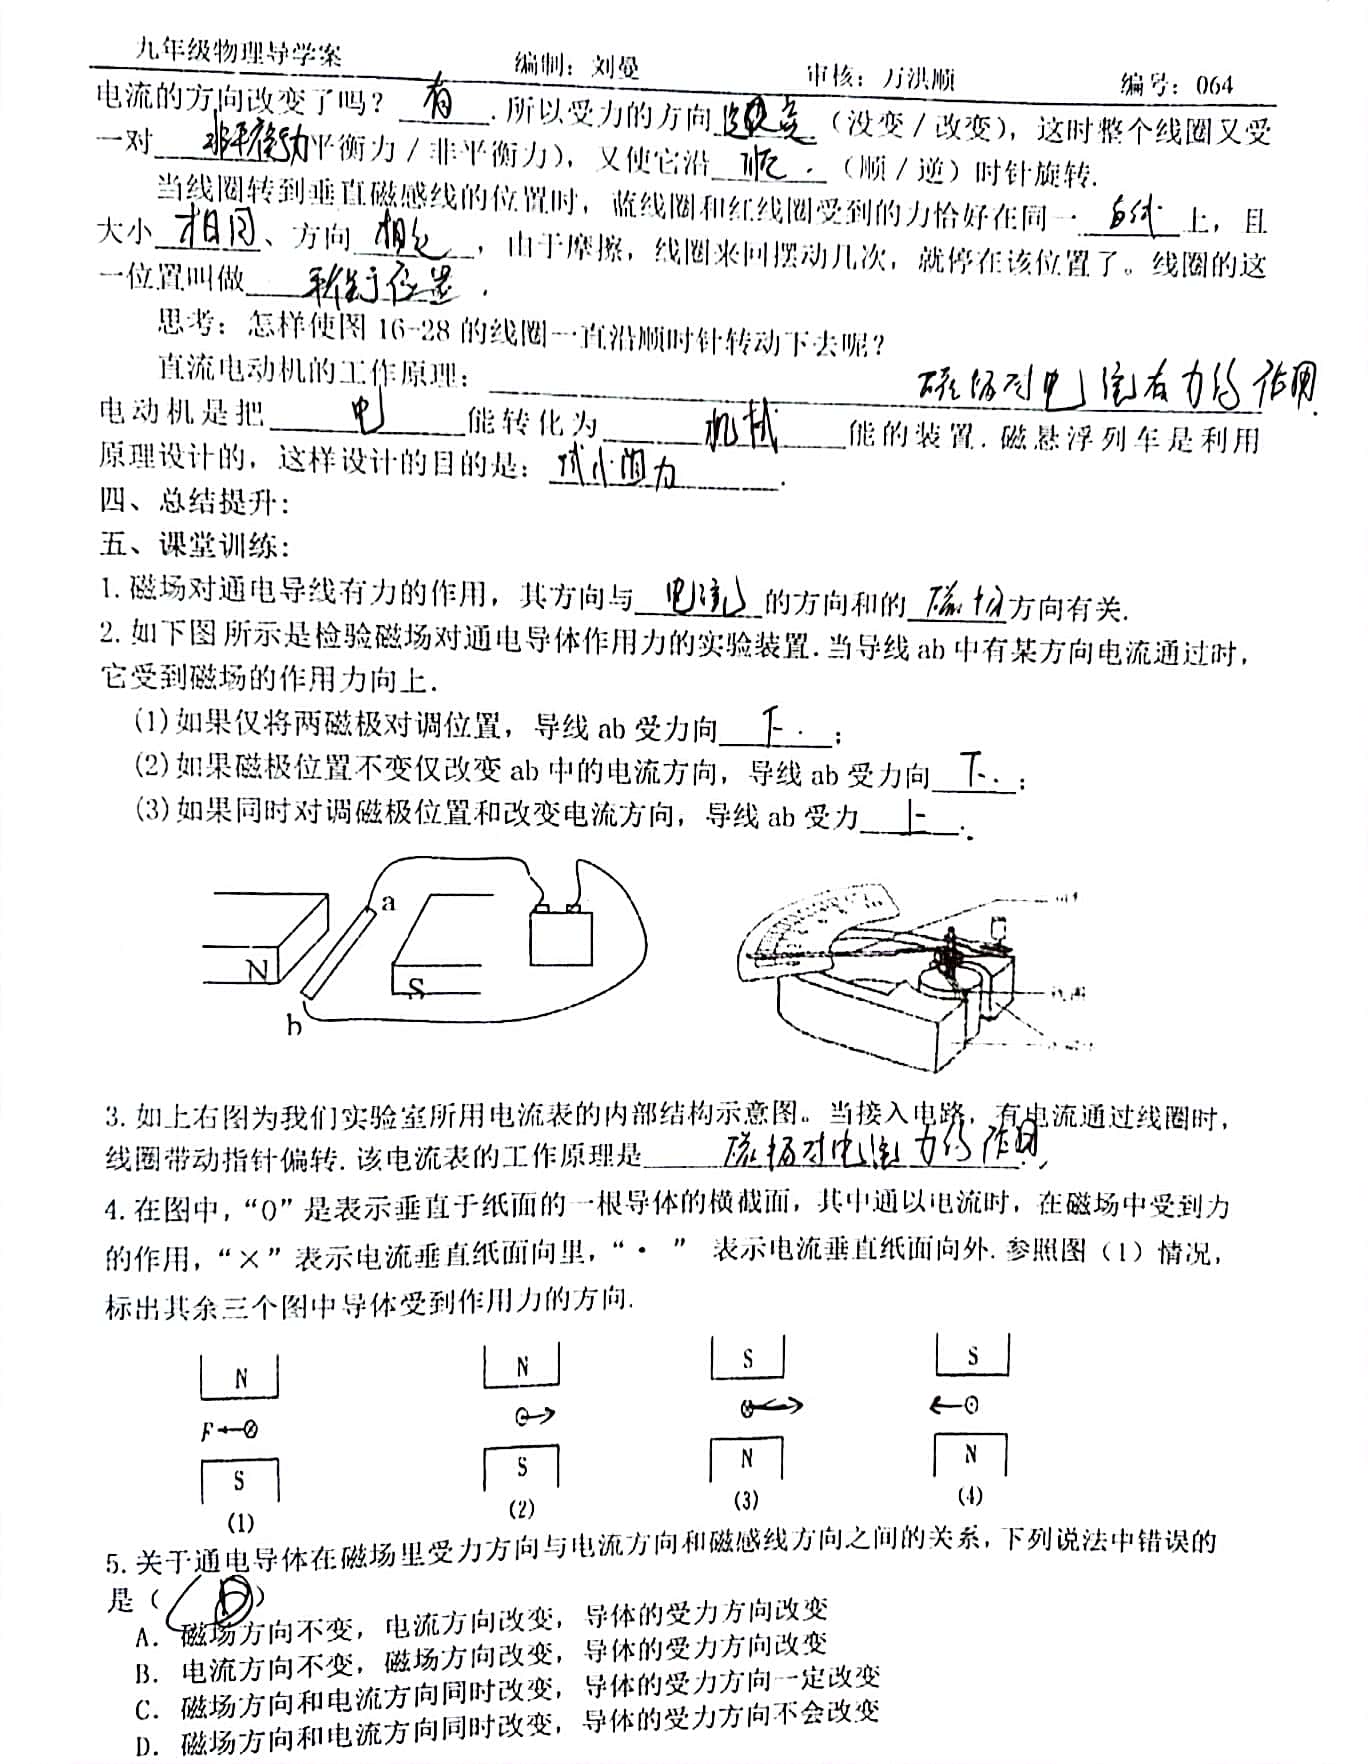 九年级物理导学案 编制：刘曼 审核：万洪顺 编号：064
电流的方向改变了吗？ 有 .所以受力的方向 改变 （没变／改变），这时整个线圈又受
一对 非平衡力 平衡力／非平衡力），又使它沿 顺 . （顺／逆）时针旋转.
当线圈转到垂直磁感线的位置时，蓝线圈和红线圈受到的力恰好在同一 直线 上，且
大小 相同 、方向 相反 ，由于摩擦，线圈来回摆动几次，就停在该位置了。线圈的这
一位置叫做 平衡位置 .
思考：怎样使图 16-28 的线圈一直沿顺时针转动下去呢？
直流电动机的工作原理： 磁场对电流有力的作用.
电动机是把 电 能转化为 机械 能的装置.磁悬浮列车是利用
原理设计的，这样设计的目的是： 减小阻力 .
四、总结提升：
五、课堂训练：
1.磁场对通电导线有力的作用，其方向与 电流 的方向和的 磁场 方向有关.
2.如下图所示是检验磁场对通电导体作用力的实验装置.当导线 ab 中有某方向电流通过时，
它受到磁场的作用力向上.
(1)如果仅将两磁极对调位置，导线 ab 受力向 下. ；
(2)如果磁极位置不变仅改变 ab 中的电流方向，导线 ab 受力向 下. ；
(3)如果同时对调磁极位置和改变电流方向，导线 ab 受力 上 .
a
N S
b
3.如上右图为我们实验室所用电流表的内部结构示意图。当接入电路，有电流通过线圈时，
线圈带动指针偏转.该电流表的工作原理是 磁场对电流力的作用.
4.在图中，“O”是表示垂直于纸面的一根导体的横截面，其中通以电流时，在磁场中受到力
的作用，“×”表示电流垂直纸面向里，“· ” 表示电流垂直纸面向外.参照图（1）情况，
标出其余三个图中导体受到作用力的方向.
N N S S
F
S S N N
(1) (2) (3) (4)
5.关于通电导体在磁场里受力方向与电流方向和磁感线方向之间的关系，下列说法中错误的
是（ ）
A. 磁场方向不变，电流方向改变，导体的受力方向改变
B. 电流方向不变，磁场方向改变，导体的受力方向改变
C. 磁场方向和电流方向同时改变，导体的受力方向一定改变
D. 磁场方向和电流方向同时改变，导体的受力方向不会改变